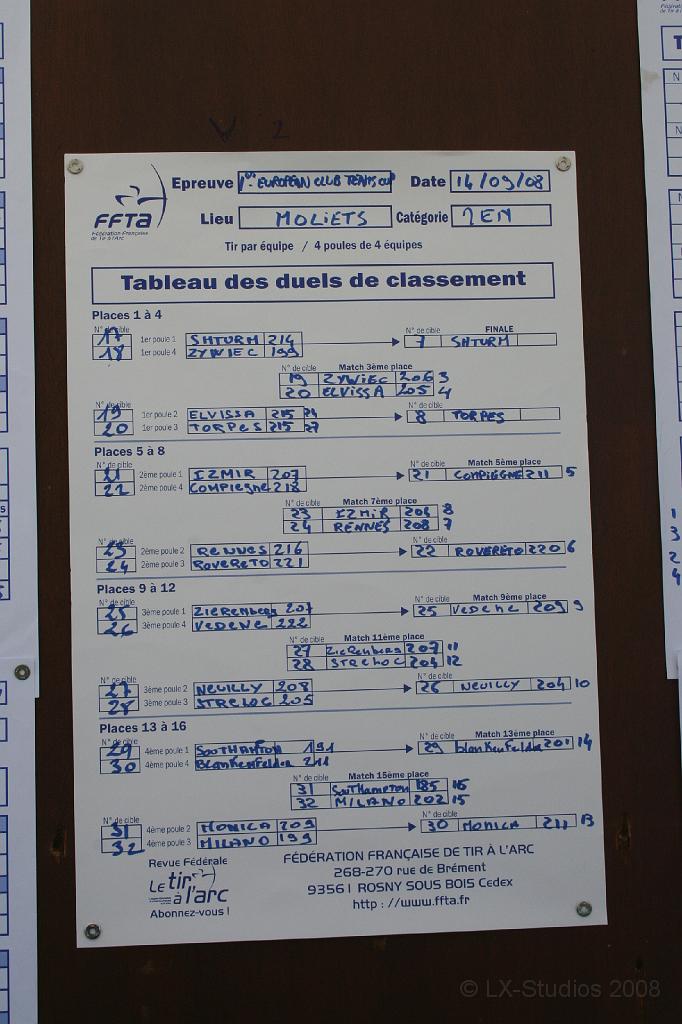 FFTA
Fédération Française
de Tir à l'Arc
Epreuve 1er EUROPEAN CLUB TEAMS CUP Date 14/09/08
Lieu MOLIETS Catégorie
Tir par équipe / 4 poules de 4 équipes
Tableau des duels de classement
Places 1 à 4
N° de cible
17 1er poule 1 SHTURM 214
18 1er poule 4 ZYWIEC 199
N° de cible FINALE
7 SHTURM
N° de cible Match 3ème place
19 ZYWIEC 206 3
20 ELVISSA 205 4
N° de cible
19 1er poule 2 ELVISSA 215 24
20 1er poule 3 TORPES 215 27
N° de cible
8 TORPES
Places 5 à 8
N° de cible
21 2ème poule 1 IZMIR 207
22 2ème poule 4 COMPIEGNE 218
N° de cible Match 5ème place
21 COMPIEGNE 211 5
N° de cible Match 7ème place
23 IZMIR 204 8
24 RENNES 208 7
N° de cible
23 2ème poule 2 RENNES 216
24 2ème poule 3 ROVERETO 221
N° de cible
22 ROVERETO 220 6
Places 9 à 12
N° de cible
25 3ème poule 1 ZIERENBERG 207
26 3ème poule 4 VEDENE 222
N° de cible Match 9ème place
25 VEDENE 209 9
N° de cible Match 11ème place
27 ZIERENBERG 207 11
28 STRELOC 204 12
N° de cible
27 3ème poule 2 NEUILLY 208
28 3ème poule 3 STRELOC 205
N° de cible
26 NEUILLY 204 10
Places 13 à 16
N° de cible
29 4ème poule 1 SOOTHAMTON 191
30 4ème poule 4 Blankenfelder 211
N° de cible Match 13ème place
29 blankenfelder 201 14
N° de cible Match 15ème place
31 SOUTHAMPTON 185 16
32 MILANO 202 15
N° de cible
31 4ème poule 2 MONICA 209
32 4ème poule 3 MILANO 199
N° de cible
30 MONICA 211 13
Revue Fédérale
Le tir
à l'arc
Abonnez-vous !
FÉDÉRATION FRANÇAISE DE TIR À L'ARC
268-270 rue de Brément
93561 ROSNY SOUS BOIS Cedex
http : //www.ffta.fr
1
3
2
4
© LX-Studios 2008